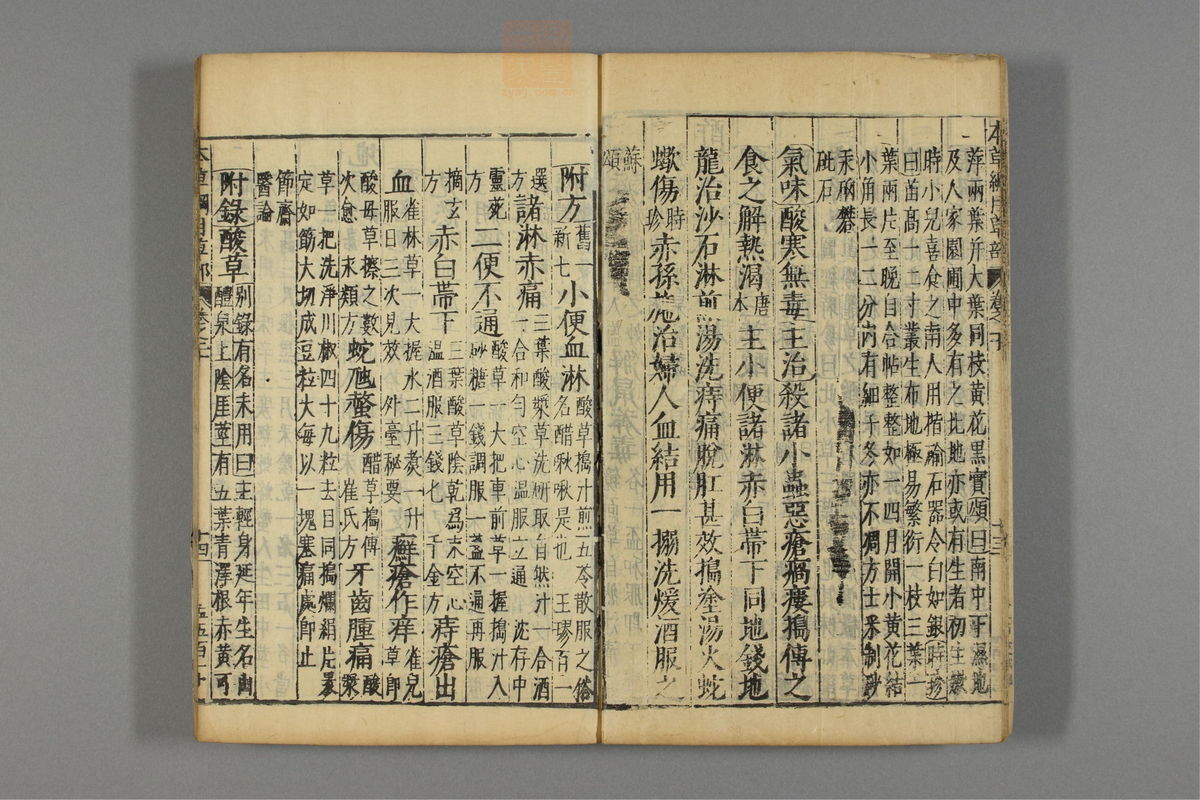 萍兩葉并大葉同枝黃花黑實頌曰南中下濕地
及人家園圃中多有之北地亦或有生者初生嫩
時小兒喜食之南人用楷瑜石器令白如銀時珍
曰苗高一二寸叢生布地極易繁衍一枝三葉一
葉兩片至晚自合帖整整如一四月開小黃花結
小角長一二分內有細子冬亦不凋方士采制砂
汞硇礬
砒石
氣味酸寒無毒主治殺諸小蟲惡瘡瘑瘻搗傅之
食之解熱渴唐本主小便諸淋赤白帶下同地錢地
龍治沙石淋煎湯洗痔痛脫肛甚效搗塗湯火蛇
蠍傷時珍赤孫施治婦人血結用一搦洗煖酒服之
蘇頌
附方舊一新七小便血淋酸草搗汁煎五苓散服之俗名醋啾啾是也 王璆百一
選方諸淋赤痛三葉酸漿草洗研取自然汁一合酒一合和勻空心溫服立通 沈存中
靈苑方二便不通酸草一大把車前草一握搗汁入砂糖一錢調服一盞不通再服
摘玄方赤白帶下三葉酸草陰乾為末空心溫酒服三錢匕 千金方痔瘡出
血雀林草一大握水二升煑一升服日三次見效 外臺秘要癬瘡作痒雀兒草即
酸母草擦之數次愈 末類方蛇虺螫傷醋草搗傅 崔氏方牙齒腫痛酸漿
草一把洗淨川椒四十九粒去目同搗爛絹片裹
定如筯大切成豆粒大每以一塊塞痛處即止
節齋醫論
附錄酸草別錄有名未用曰主輕身延年生名山醴泉上陰厓莖有五葉青澤根赤黃可
本草綱目草部 卷之二十
十四